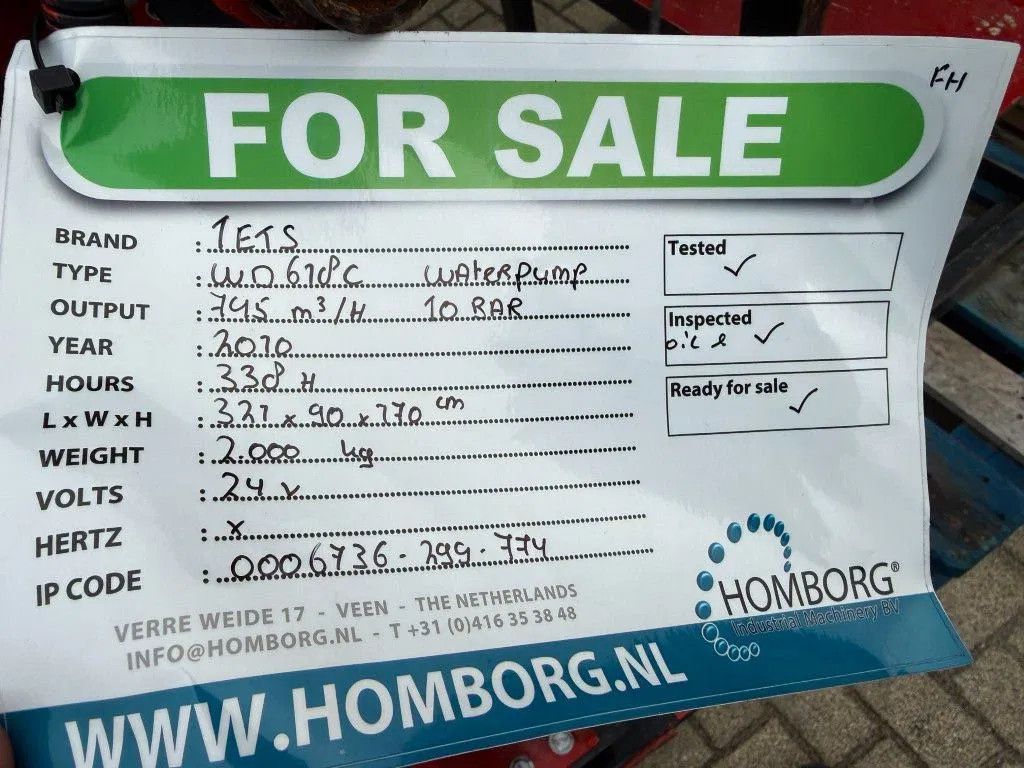 FH
FOR SALE
BRAND : IETS
TYPE : WD618C WATERPUMP
OUTPUT : 745 m³/H 10 BAR
YEAR : 2010
HOURS : 338 H
L x W x H : 321 x 90 x 170 cm
WEIGHT : 2.000 kg
VOLTS : 24 v
HERTZ : x
IP CODE : 0006736-299-774
Tested ✓
Inspected ✓
Ready for sale ✓
VERRE WEIDE 17 - VEEN - THE NETHERLANDS
INFO@HOMBORG.NL - T +31 (0)416 35 38 48
HOMBORG®
Industrial Machinery BV
WWW.HOMBORG.NL